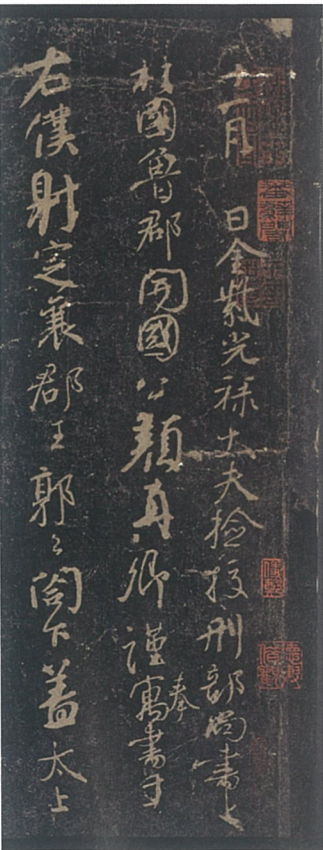 十一月日金紫光禄大夫检校刑部尚書上
柱國魯郡開國公顔真卿謹奉寓書于
右僕射定襄郡王郭公閣下蓋太上